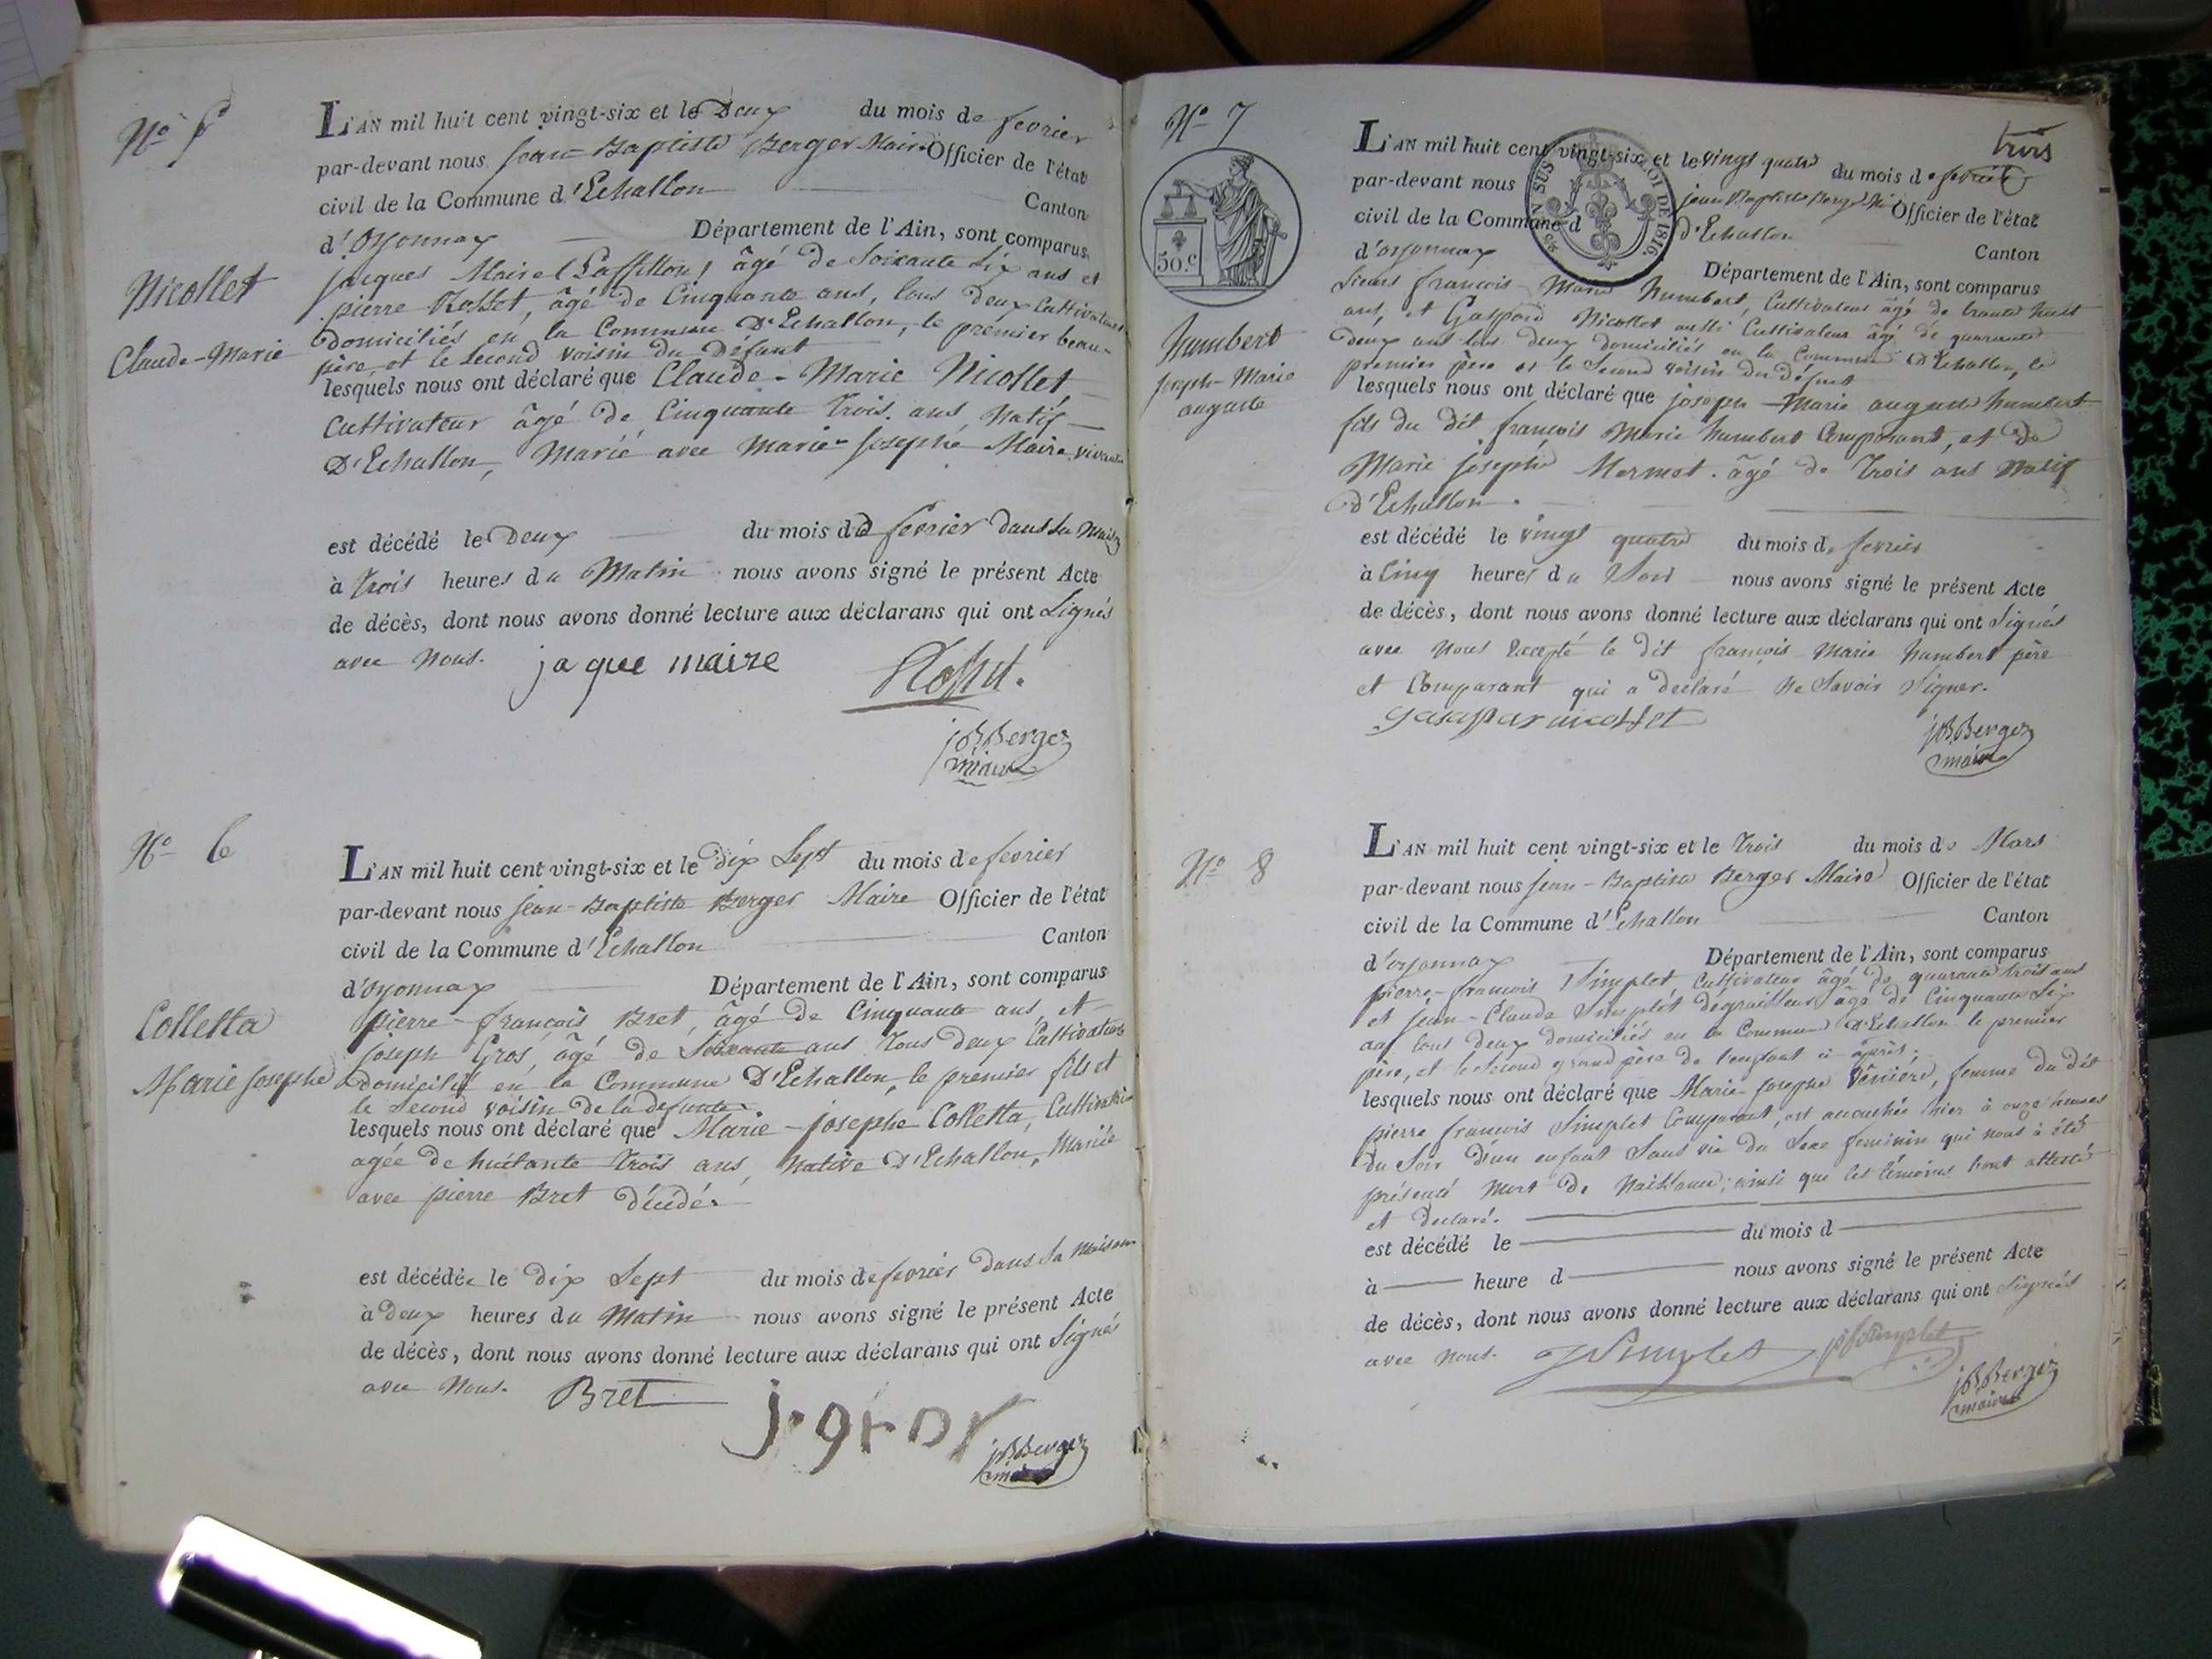 No 5
L'AN mil huit cent vingt-six et le Deux du mois de fevrier
par-devant nous jean-Baptiste Berger Maire Officier de l'état
civil de la Commune d'Echallon Canton
d'Oyonnax Département de l'Ain, sont comparus
jacques Maire âgé de Soixante Six ans et
pierre Rosset, âgé de Cinquante ans, tous deux Cultivateurs
Domiciliés en la Commune D'Echallon, le premier beau-
père, et le Second voisin du Défunt
Nicollet
Claude-Marie
lesquels nous ont déclaré que Claude-Marie Nicollet
Cultivateur âgé de Cinquante trois ans, Natif
D'Echallon, Marié avec Marie josephe Maire, vivante
est décédé le Deux du mois de fevrier dans sa Maison
à trois heures du Matin nous avons signé le présent Acte
de décès, dont nous avons donné lecture aux déclarans qui ont Signés
avec Nous. jaque maire Rosset.
jB Berger
maire
No 6
L'AN mil huit cent vingt-six et le dix Sept du mois de fevrier
par-devant nous jean-Baptiste Berger Maire Officier de l'état
civil de la Commune d'Echallon Canton
d'Oyonnax Département de l'Ain, sont comparus
pierre-françois Bret, âgé de Cinquante ans, et
joseph Gros, âgé de Soixante ans tous deux Cultivateurs
Domiciliés en la Commune D'Echallon, le premier fils et
le Second voisin de la defunte
Colletta
Marie josephe
lesquels nous ont déclaré que Marie-josephe Colletta, Cultivatrice
agée de huitante trois ans, Native D'Echallon, Mariée
avec pierre Bret décédé.
est décédée le dix Sept du mois de fevrier dans sa Maison
à deux heures du Matin nous avons signé le présent Acte
de décès, dont nous avons donné lecture aux déclarans qui ont Signés
avec Nous. Bret j. gros
jB Berger
maire
No 7
trois
50.c
LOI DE 1816
L'AN mil huit cent vingt-six et le vingt quatre du mois de fevrier
par-devant nous jean Baptiste Berger Officier de l'état
civil de la Commune d d'Echallon Canton
d'oyonnax Département de l'Ain, sont comparus
Sieurs françois-Marie humbert, Cultivateur âgé de trente huit
ans, et Gaspard Nicollet aussi Cultivateur âgé de quarante
Deux ans tous deux domiciliés en la Commune D'Echallon, le
premier père et le Second voisin du défunt
humbert
joseph-Marie
auguste
lesquels nous ont déclaré que joseph-Marie auguste humbert
fils du dit françois Marie humbert Comparant, et de
Marie josephe Mermet. âgé de trois ans Natif
d'Echallon.
est décédé le vingt quatre du mois de fevrier
à Cinq heures du Soir nous avons signé le présent Acte
de décès, dont nous avons donné lecture aux déclarans qui ont Signés
avec Nous Excepté le dit françois Marie humbert père
et Comparant qui a declaré Ne Savoir Signer.
gaspar nicollet
jB Berger
maire
No 8
L'AN mil huit cent vingt-six et le trois du mois de Mars
par-devant nous jean-Baptiste Berger Maire Officier de l'état
civil de la Commune d'Echallon Canton
d'oyonnax Département de l'Ain, sont comparus
pierre-francois Simplet, Cultivateur âgé de quarante trois ans
et jean-Claude Simplet âgé de Cinquante Six
ans tous deux domiciliés en la Commune D'Echallon le premier
père, et le Second grand père de l'enfant ci-après;
lesquels nous ont déclaré que Marie-josephe femme du dit
pierre francois Simplet Comparant, est accouchée hier à onze heures
du Soir d'un enfant Sans vie du Sexe feminin qui nous à été
présenté Mort de Naissance; ainsi que les témoins l'ont attesté
et declaré.
est décédé le du mois d
à heure d nous avons signé le présent Acte
de décès, dont nous avons donné lecture aux déclarans qui ont Signés
avec Nous. Simplet Simplet
jB Berger
maire